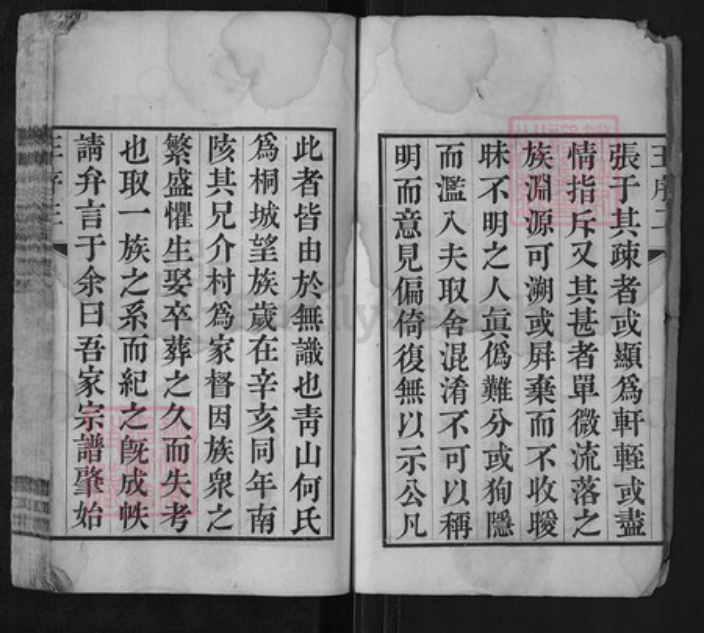 王序二
張于其疎者或顯爲軒輊或盡
情指斥又其甚者單微流落之
族淵源可溯或屛棄而不收曖
昧不明之人眞僞難分或狥隱
而濫入夫取舍混淆不可以稱
明而意見偏倚復無以示公凡
此者皆由於無識也靑山何氏
爲桐城望族歲在辛亥同年南
陔其兄介村爲家督因族衆之
繁盛懼生娶卒葬之久而失考
也取一族之系而紀之旣成帙
請弁言于余曰吾家宗譜肇始
王序三